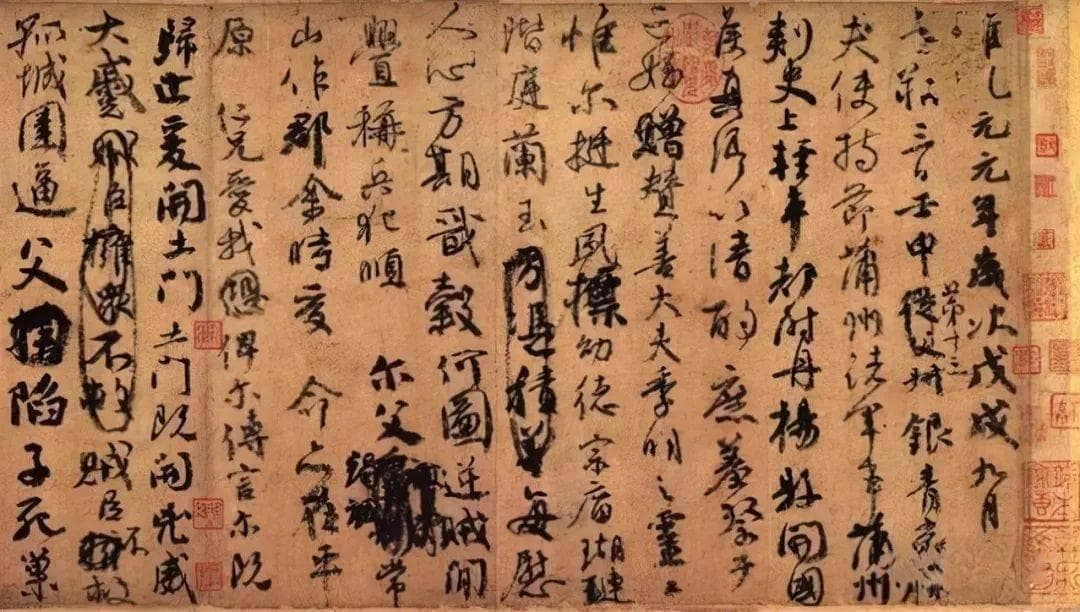 維乾元元年歲次戊戌九月
庚午朔三日壬申第十三從父叔銀青光祿
夫使持節蒲州諸軍事蒲州
刺史上輕車都尉丹楊縣開國
侯真卿以清酌庶羞祭于
亡姪贈贊善大夫季明之靈曰
惟爾挺生夙標幼德宗廟瑚璉
階庭蘭玉方憑積善每慰
人心方期戩穀何圖逆賊閒
釁稱兵犯順 爾父竭誠常
山作郡余時受命亦在平
原仁兄愛我恐俾爾傳言爾既
歸止爰開土門土門既開凶威
大蹙賊臣擁眾不救賊臣不救
孤城圍逼父陷子死巢